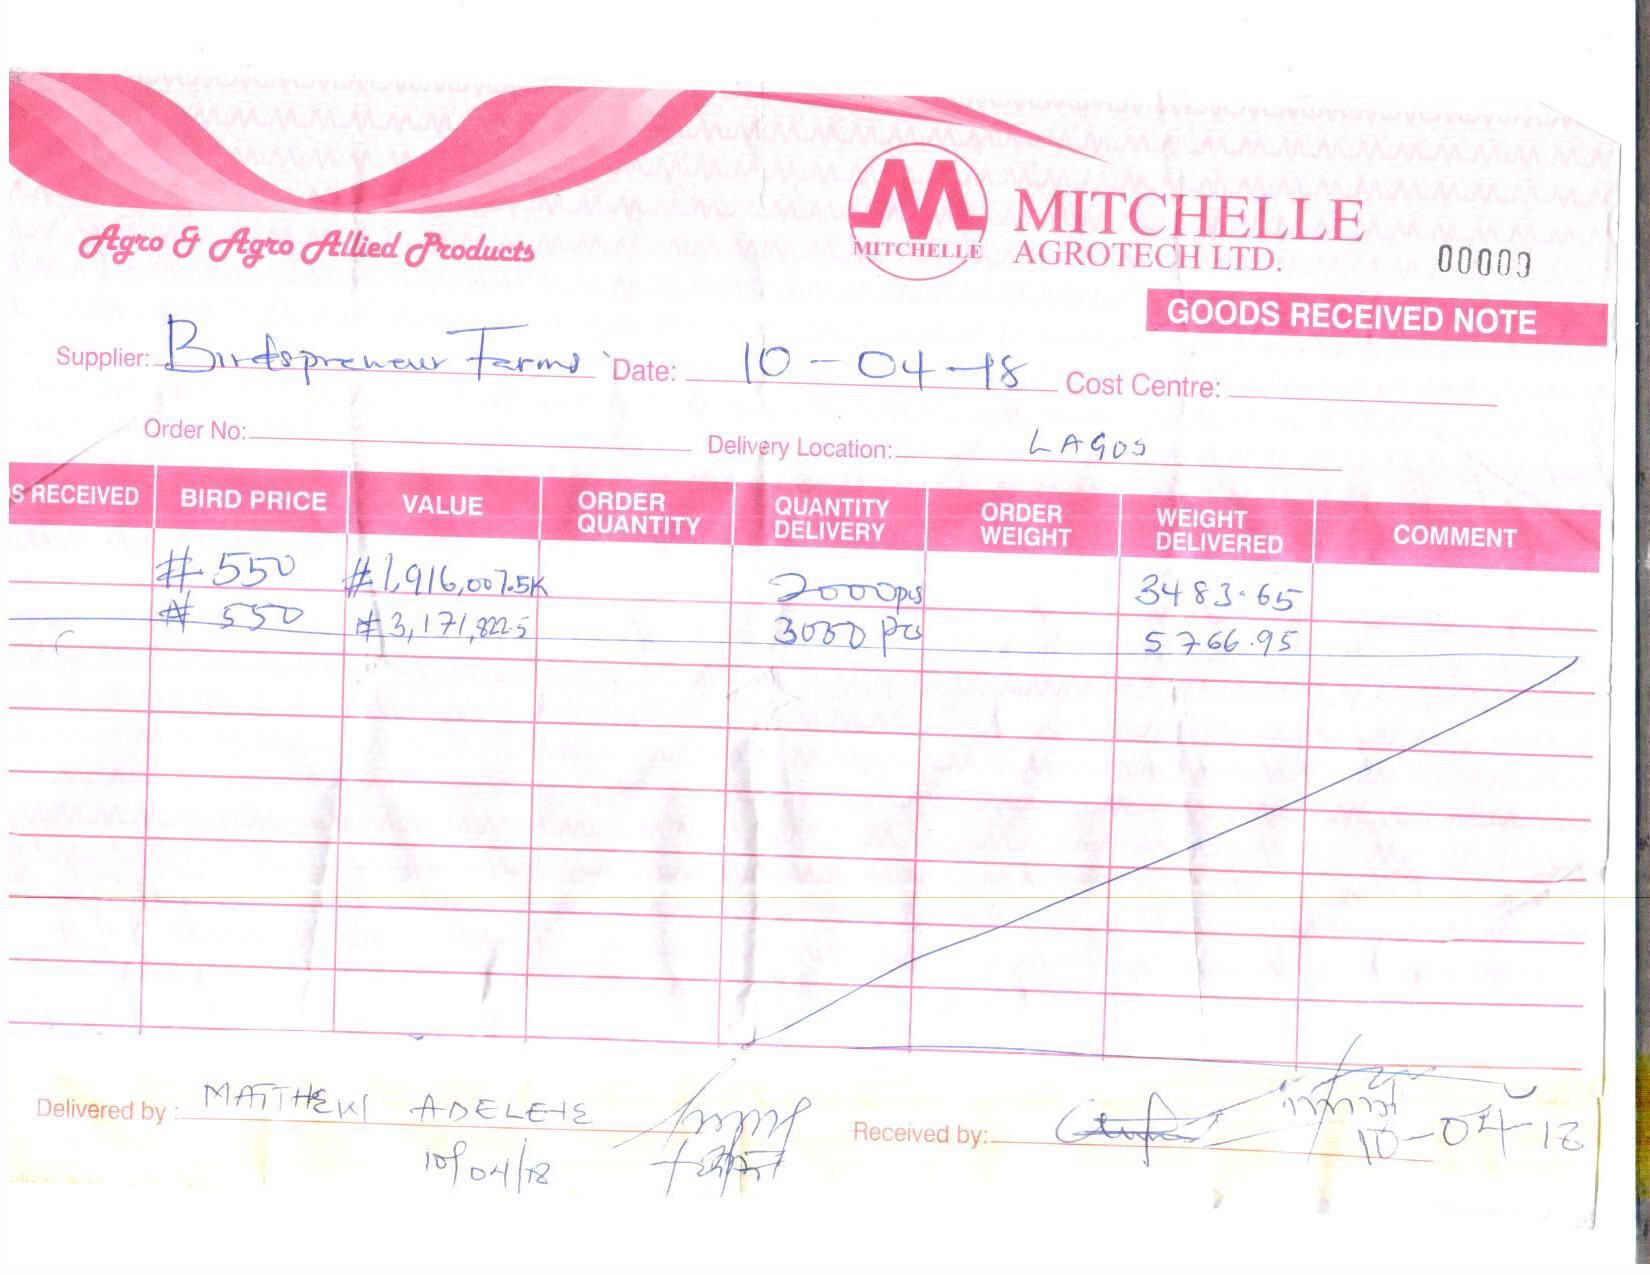 MITCHELLE
MITCHELLE
AGROTECH LTD.
Agro & Agro Allied Products
00009
GOODS RECEIVED NOTE
Supplier: Birdspreneur Farms Date: 10-04-18 Cost Centre:
Order No: Delivery Location: LAGOS
S RECEIVED BIRD PRICE VALUE ORDER QUANTITY QUANTITY DELIVERY ORDER WEIGHT WEIGHT DELIVERED COMMENT
₦ 550 ₦1,916,007.5K 2000pcs 3483.65
₦ 550 ₦3,171,822.5 3000 pcs 5766.95
Delivered by: MATTHEW ADELEKE Received by:
10/04/18 10-04-18